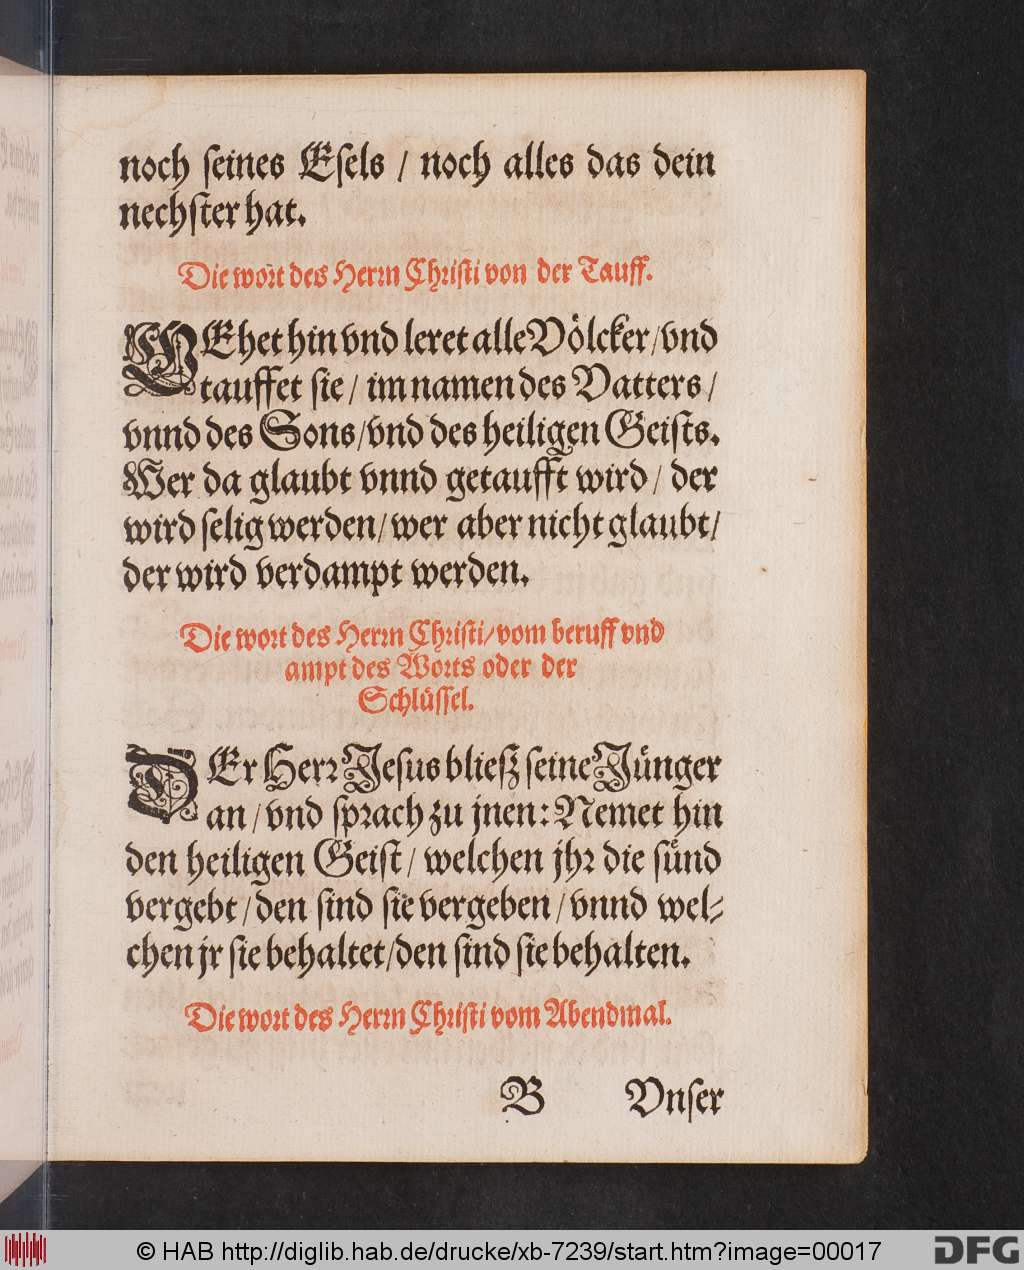 noch seines Esels / noch alles das dein
nechster hat.
Die wort des Herrn Christi von der Tauff.
GEhet hin vnd leret alle Völcker / vnd
tauffet sie / im namen des Vatters /
vnnd des Sons / vnd des heiligen Geists.
Wer da glaubt vnnd getaufft wird / der
wird selig werden / wer aber nicht glaubt /
der wird verdampt werden.
Die wort des Herrn Christi / vom beruff vnd
ampt des Worts oder der
Schlüssel.
DEr Herr Jesus bließ seine Jünger
an / vnd sprach zu jnen: Nemet hin
den heiligen Geist / welchen jhr die sünd
vergebt / den sind sie vergeben / vnnd wel-
chen jr sie behaltet / den sind sie behalten.
Die wort des Herrn Christi vom Abendmal.
B Vnser
© HAB http://diglib.hab.de/drucke/xb-7239/start.htm?image=00017
DFG